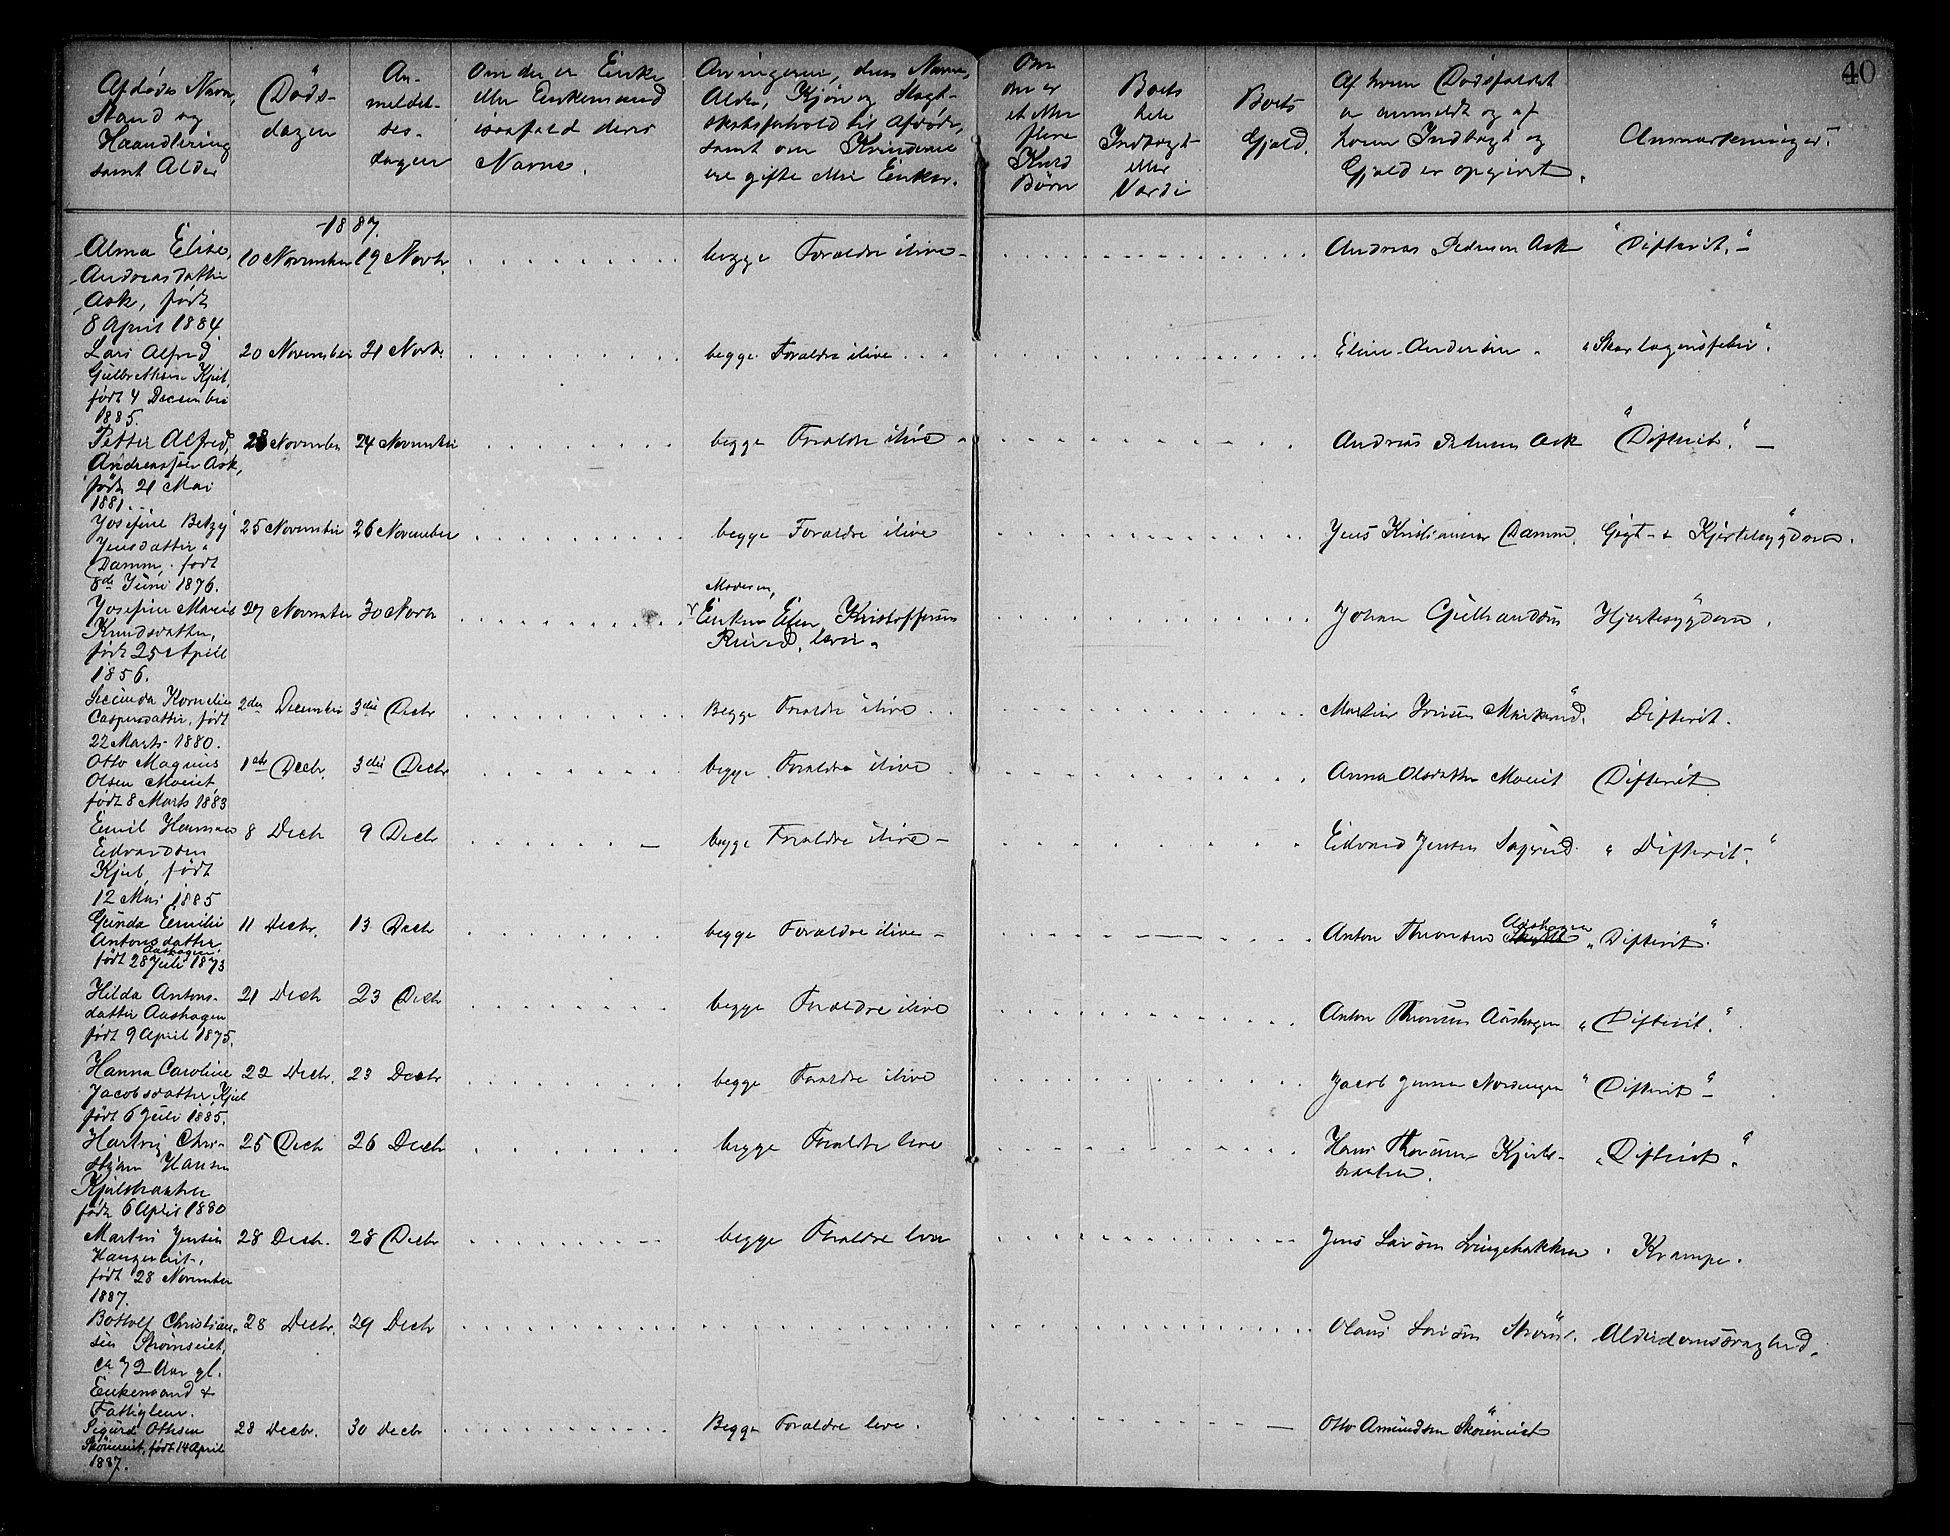 40
Afdødes Navn,
Stand og
Haandtering
samt Alder
Døds-
dagen
An-
meldel-
ses-
dagen
Om der er Enke
eller Enkemand
isaafald deres
Navne.
Arvingerne, deres Navne,
Alder, Kjøn og Slægt-
skabsforhold til Afdøde,
samt om Kvinderne
ere gifte eller Enker.
Om
der er
et eller
flere
Kuld
Børn
Boets
hele
Indtægt
eller
Værdi
Boets
Gjæld.
Af hvem Dødsfaldet
er anmeldt og af
hvem Indtægt og
Gjæld er opgivet.
Anmærkninger.
1887.
Alma Elise, 10 November 19 Novbr. begge Forældre ilive - Andreas Pedersen Ask "Difterit." -
Andreasdatter
Ask, født
8 April 1884
Lars Alfred 20 November 21 Novbr. begge Forældre ilive Eline Andersen. "Skarlagensfeber".
Gulbrandsen Kjel,
født 4 December
1885.
Petter Alfred, 23 November 24 November begge Forældre ilive - Andreas Pedersen Ask "Difterit." -
Andreassen Ask,
født 21 Mai
1881.
Josefine Betzy 25 November 26 November begge Forældre ilive Jens Kristiansen Damm. Gigt- & Kjertelsygdom.
Jensdatter
Damm, født
8de Juni 1876.
Moderen,
Josefine Marie 27 November 30 Novbr Enken Kristoffersen Johan Gulbrandsen Hjertesygdom.
Knudsdatter, Ruud, lever.
født 25 April
1856.
Secunda Kornelia 2den December 3die Decbr Begge Forældre ilive Difterit.
Caspersdatter, født
22 Marts 1880.
Otto Magnus 1ste Decbr. 3die Decbr begge Forældre ilive Anna Olsdatter Moeiet Difterit
Olsen Moeiet,
født 8 Marts 1883
Emil Herman 8 Decbr 9 Decbr begge Forældre ilive - Edvard Jensen "Difterit."
Edvardsen
Kjel, født
12 Mai 1885
Gunda Emilie 11 Decbr. 13 Decbr begge Forældre ilive - Anton Thoresen Aashagen "Difterit."
Antonsdatter,
Aashagen
født 28 Juli 1873
Hilda Antons- 21 Decbr 23 Decbr begge Forældre ilive Anton Thoresen Aashagen "Difterit."
datter Aashagen
født 9 April 1875.
Hanna Caroline 22 Decbr. 23 Decbr begge Forældre ilive Jacob Jensen Nordengen "Difterit" -
Jacobsdatter Kjel
født 6 Juli 1885.
Hartvig Chri- 25 Decbr 26 Decbr begge Forældre leve Hans Thoresen Kjels- "Difterit".
stian Hansen braaten.
Kjelsbraaten
født 6 April 1880
Martin Jensen 28 Decbr. 28 Decbr begge Forældre lever Jens Larsen Lyngebakken. Krampe.
Haugereiet,
født 28 November
1887.
Bottolf Christian- 28 Decbr. 29 Decbr Olaus Larsen Alderdomssvaghed.
sen Strømseiet,
ca 72 Aar gl.
Enkemand &
Fattiglem.
Sigurd Ottesen 28 Decbr. 30 Decbr Begge Forældre leve. Otto Amundsen Skøieneiet
Skøieneiet, født 14 April
1887.